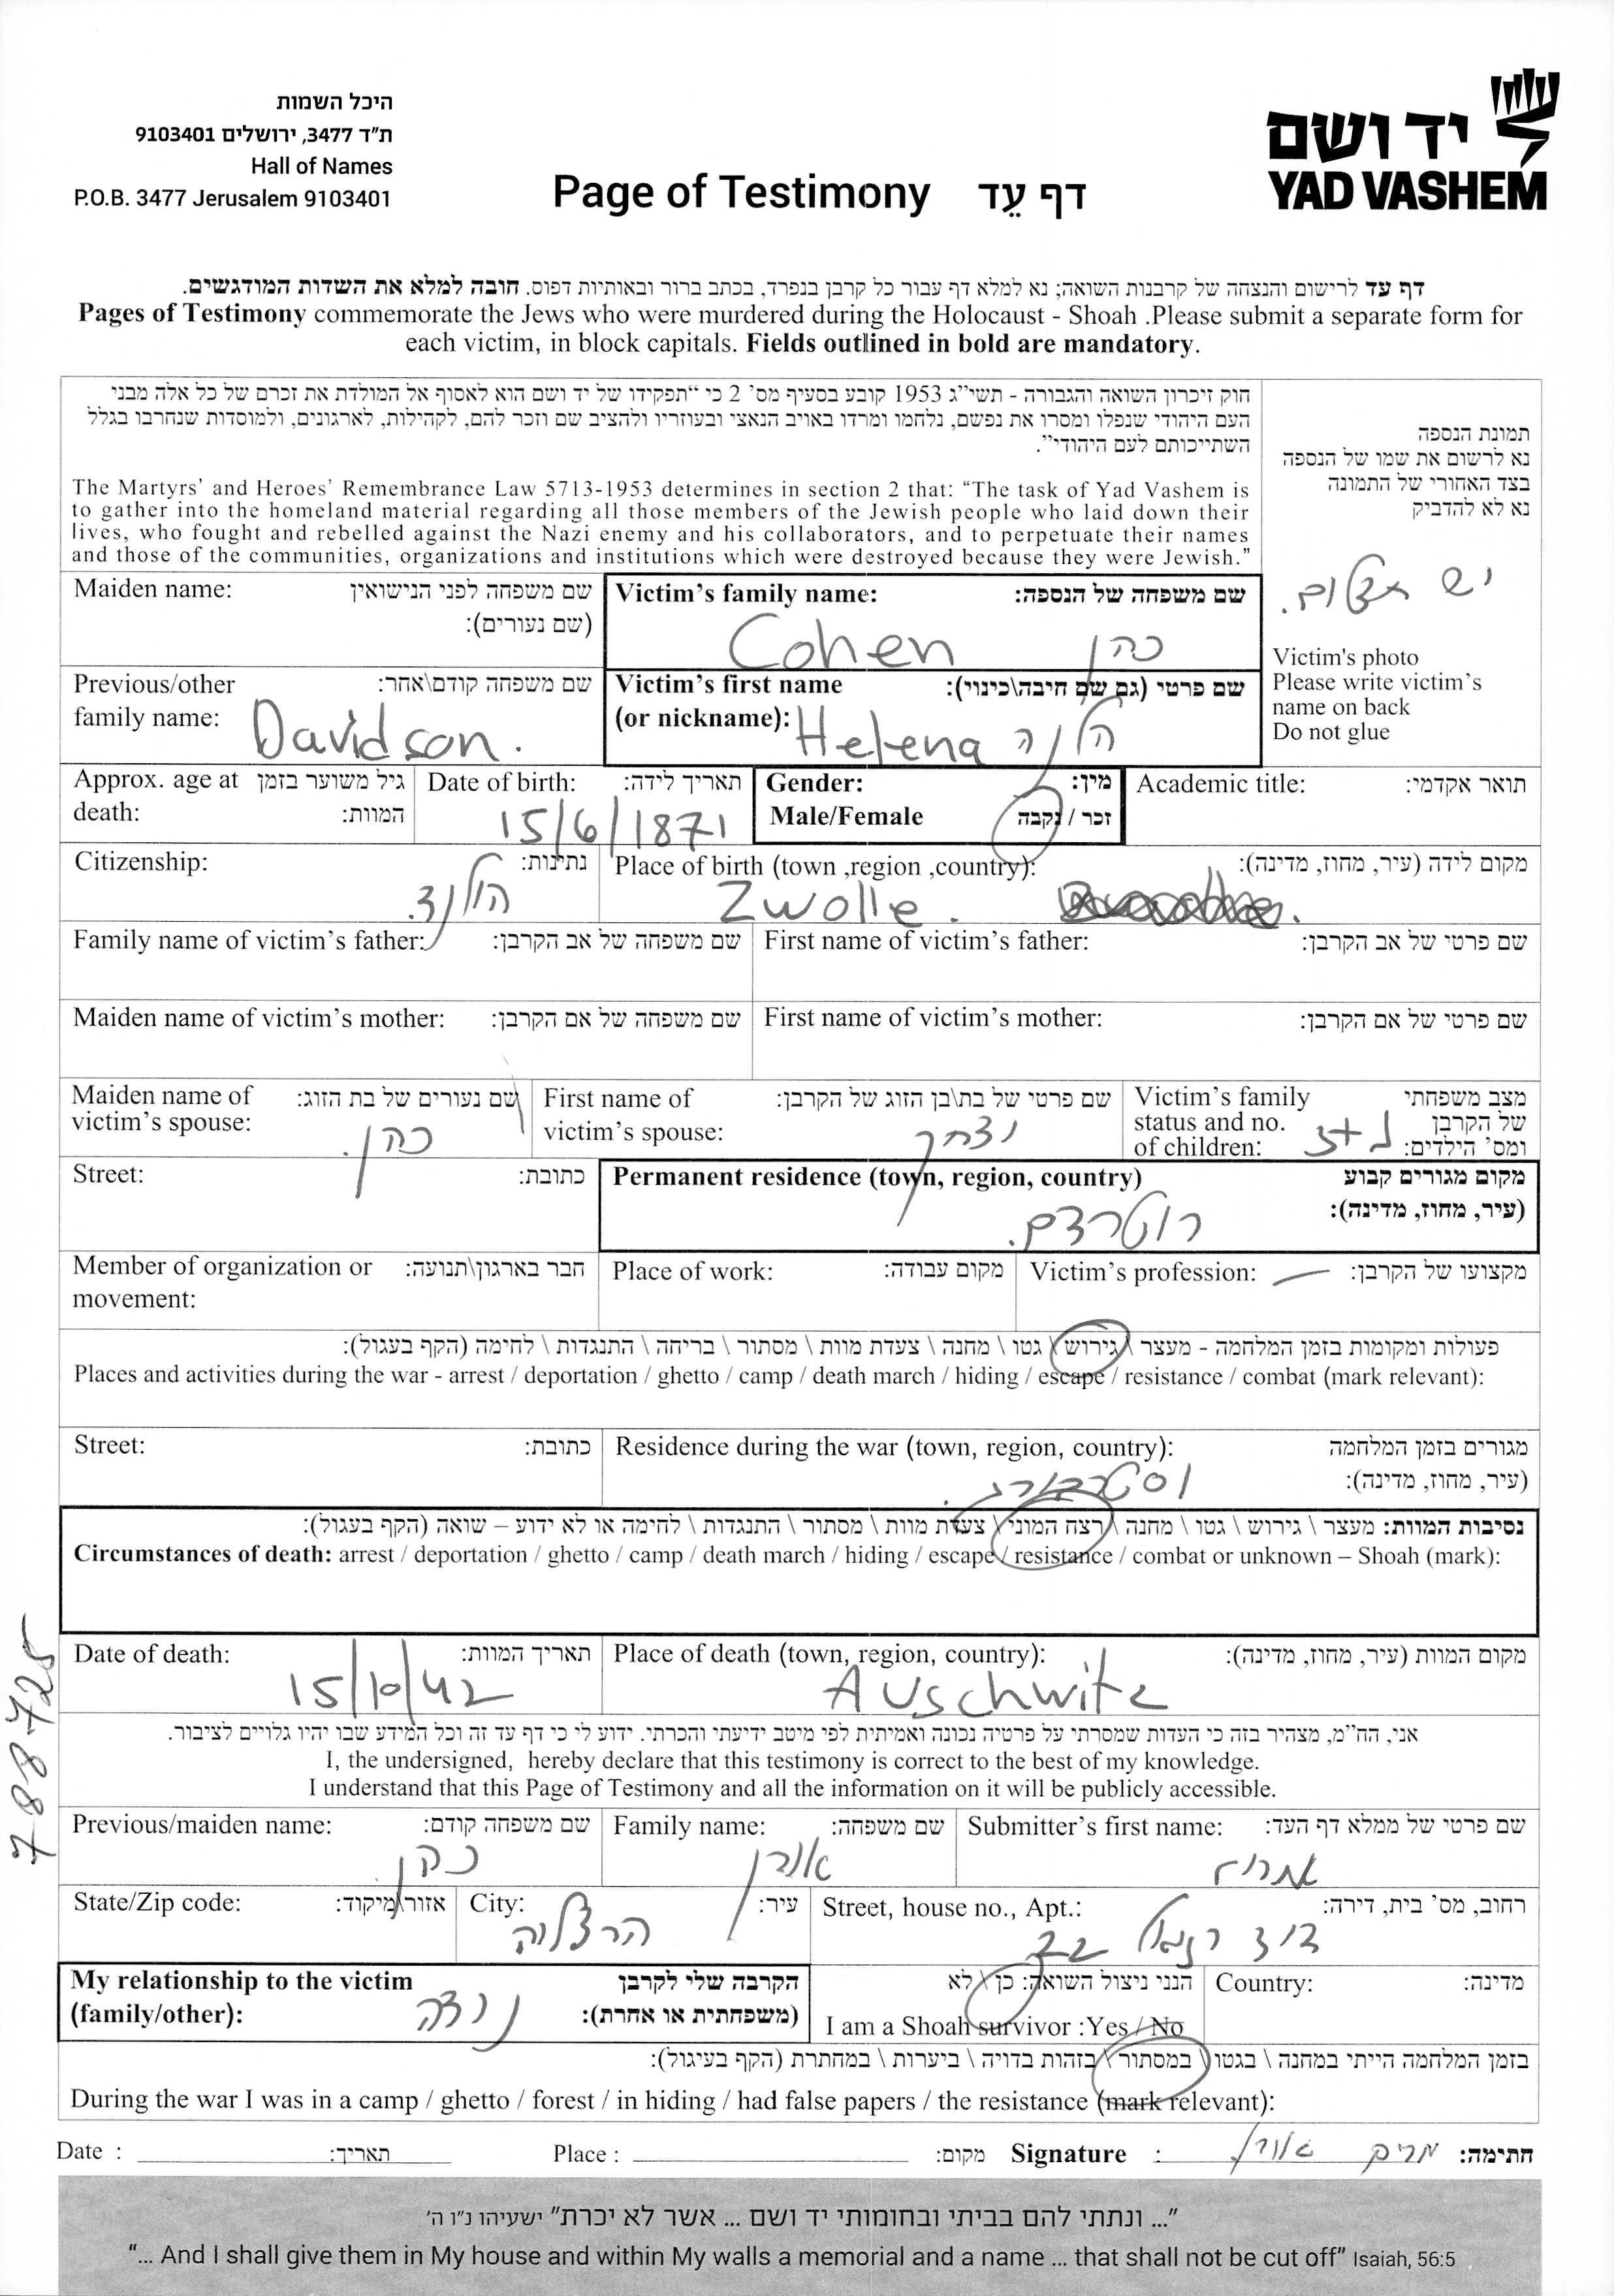 היכל השמות
ת"ד 3477, ירושלים 9103401
Hall of Names
P.O.B. 3477 Jerusalem 9103401
Page of Testimony דף עֵד
יד ושם
YAD VASHEM
דף עד לרישום והנצחה של קרבנות השואה; נא למלא דף עבור כל קרבן בנפרד, בכתב ברור ובאותיות דפוס. חובה למלא את השדות המודגשים.
Pages of Testimony commemorate the Jews who were murdered during the Holocaust - Shoah .Please submit a separate form for
each victim, in block capitals. Fields outlined in bold are mandatory.
חוק זיכרון השואה והגבורה - תשי"ג 1953 קובע בסעיף מס' 2 כי "תפקידו של יד ושם הוא לאסוף אל המולדת את זכרם של כל אלה מבני
העם היהודי שנפלו ומסרו את נפשם, נלחמו ומרדו באויב הנאצי ובעוזריו ולהציב שם וזכר להם, לקהילות, לארגונים, ולמוסדות שנחרבו בגלל
השתייכותם לעם היהודי".
The Martyrs' and Heroes' Remembrance Law 5713-1953 determines in section 2 that: "The task of Yad Vashem is
to gather into the homeland material regarding all those members of the Jewish people who laid down their
lives, who fought and rebelled against the Nazi enemy and his collaborators, and to perpetuate their names
and those of the communities, organizations and institutions which were destroyed because they were Jewish."
תמונת הנספה
נא לרשום את שמו של הנספה
בצד האחורי של התמונה
נא לא להדביק
יש תצלום.
Victim's photo
Please write victim's
name on back
Do not glue
Maiden name: שם משפחה לפני הנישואין
(שם נעורים):
Victim's family name: שם משפחה של הנספה:
Cohen כהן
Previous/other שם משפחה קודם\אחר:
family name: Davidson.
Victim's first name שם פרטי (גם שם חיבה\כינוי):
(or nickname): Helena הלנה
Approx. age at גיל משוער בזמן
death: המוות:
Date of birth: תאריך לידה:
15/6/1871
Gender: מין:
Male/Female זכר / נקבה
Academic title: תואר אקדמי:
Citizenship: נתינות:
הולנד.
Place of birth (town ,region ,country): מקום לידה (עיר, מחוז, מדינה):
Zwolle.
Family name of victim's father: שם משפחה של אב הקרבן:
First name of victim's father: שם פרטי של אב הקרבן:
Maiden name of victim's mother: שם משפחה של אם הקרבן:
First name of victim's mother: שם פרטי של אם הקרבן:
Maiden name of שם נעורים של בת הזוג:
victim's spouse: כהן.
First name of שם פרטי של בת\בן הזוג של הקרבן:
victim's spouse: יצחק
Victim's family מצב משפחתי
status and no. של הקרבן
of children: ומס' הילדים:
Street: כתובת:
Permanent residence (town, region, country) מקום מגורים קבוע
(עיר, מחוז, מדינה):
רוטרדם.
Member of organization or חבר בארגון\תנועה:
movement:
Place of work: מקום עבודה:
Victim's profession: — מקצועו של הקרבן:
פעולות ומקומות בזמן המלחמה - מעצר \ גירוש \ גטו \ מחנה \ צעדת מוות \ מסתור \ בריחה \ התנגדות \ לחימה (הקף בעגול):
Places and activities during the war - arrest / deportation / ghetto / camp / death march / hiding / escape / resistance / combat (mark relevant):
Street: כתובת:
Residence during the war (town, region, country): מגורים בזמן המלחמה
(עיר, מחוז, מדינה):
וסטרבורג.
נסיבות המוות: מעצר \ גירוש \ גטו \ מחנה \ רצח המוני \ צעדת מוות \ מסתור \ התנגדות \ לחימה או לא ידוע – שואה (הקף בעגול):
Circumstances of death: arrest / deportation / ghetto / camp / death march / hiding / escape / resistance / combat or unknown – Shoah (mark):
Date of death: תאריך המוות:
15/10/42
Place of death (town, region, country): מקום המוות (עיר, מחוז, מדינה):
Auschwitz
אני, הח"מ, מצהיר בזה כי העדות שמסרתי על פרטיה נכונה ואמיתית לפי מיטב ידיעתי והכרתי. ידוע לי כי דף עד זה וכל המידע שבו יהיו גלויים לציבור.
I, the undersigned, hereby declare that this testimony is correct to the best of my knowledge.
I understand that this Page of Testimony and all the information on it will be publicly accessible.
Previous/maiden name: שם משפחה קודם:
כהן
Family name: שם משפחה:
אורן
Submitter's first name: שם פרטי של ממלא דף העד:
State/Zip code: אזור\מיקוד:
City: עיר:
הרצליה
Street, house no., Apt.: רחוב, מס' בית, דירה:
My relationship to the victim הקרבה שלי לקרבן
(family/other): (משפחתית או אחרת):
נכדה
הנני ניצול השואה: כן \ לא
I am a Shoah survivor :Yes / No
Country: מדינה:
בזמן המלחמה הייתי במחנה \ בגטו \ במסתור \ בזהות בדויה \ ביערות \ במחתרת (הקף בעיגול):
During the war I was in a camp / ghetto / forest / in hiding / had false papers / the resistance (mark relevant):
Date : תאריך: Place : מקום: Signature : מרים אורן חתימה:
"... ונתתי להם בביתי ובחומותי יד ושם ... אשר לא יכרת" ישעיהו נ"ו ה'
"... And I shall give them in My house and within My walls a memorial and a name ... that shall not be cut off" Isaiah, 56:5
788725